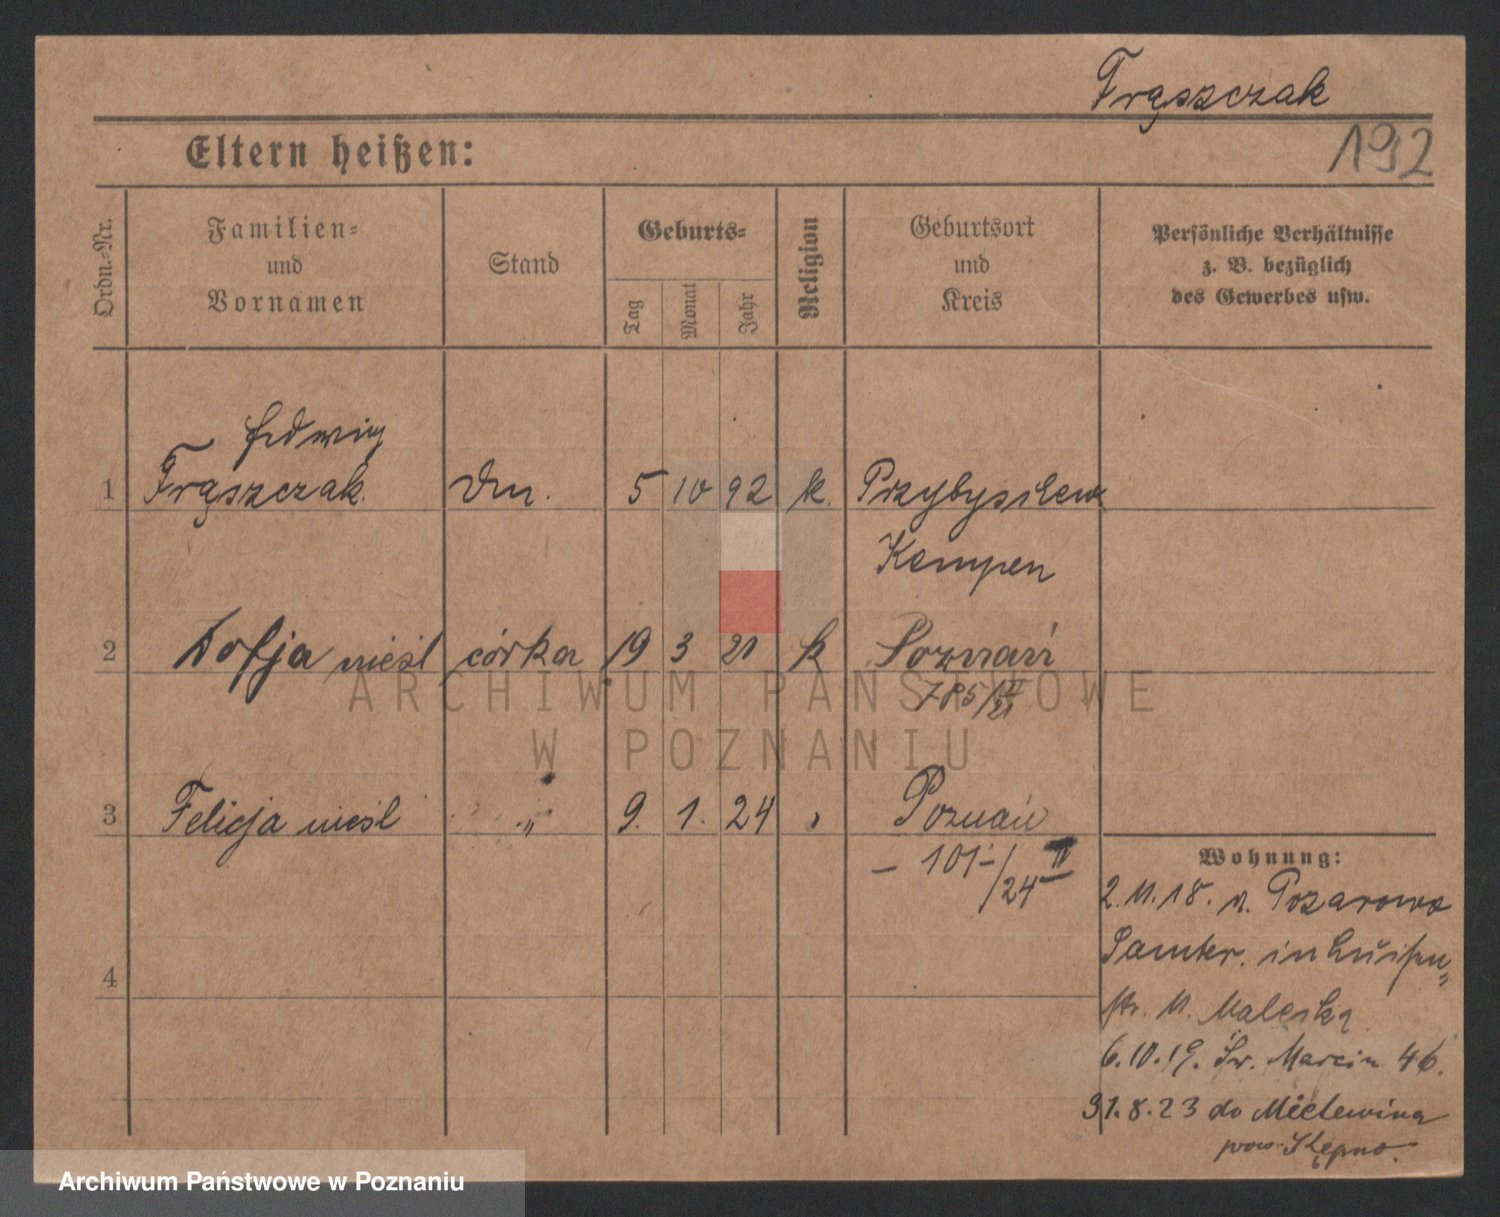 Trąszczak
192
Eltern heißen:
Ordn.-Nr.
Familien-
und
Vornamen
Stand
Geburts-
Tag
Monat
Jahr
Religion
Geburtsort
und
Kreis
Persönliche Verhältnisse
z. B. bezüglich
des Gewerbes usw.
Hedwig
1 Trąszczak. 5 10 92 k. Przybysław
Kempen
2 Zofja nieśl córka 19 3 21 k Poznań
785/II 21
3 Felicja nieśl " 9. 1. 24 Poznań
– 101 –/24 II
4
Wohnung:
2.11.18. v. Pozarowo
Samter. in Luisen-
str. 11. Maleska
6.10.19. Św. Marcin 46.
31.8.23 do Mielewina
pow.
ARCHIWUM PAŃSTWOWE
W POZNANIU
Archiwum Państwowe w Poznaniu